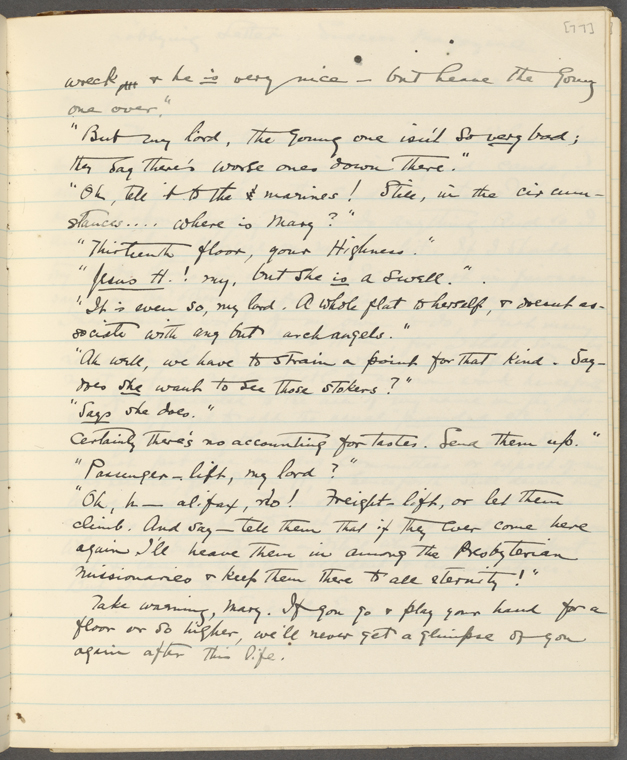 [77]
wreck & he is very nice — but heave the Young
one over."
"But my lord, the Young one isn't so very bad;
they say there's worse ones down there."
"Oh, tell it to the marines! Still, in the circum-
stances.... where is Mary?"
"Thirteenth floor, your Highness."
"Jesus H.! my, but she is a swell."
"It is even so, my lord. A whole flat to herself, & doesnt as-
sociate with any but archangels."
"Ah well, we have to strain a point for that kind. Say—
does she want to see those stokers?"
"Says she does."
Certainly there's no accounting for tastes. Send them up."
"Passenger-lift, my lord?"
"Oh, h—alifax, no! Freight-lift, or let them
climb. And say—tell them that if they ever come here
again I'll heave them in among the Presbyterian
missionaries & keep them there to all eternity!"
Take warning, Mary. If you go & play your hand for a
floor or so higher, we'll never get a glimpse of you
again after this life.